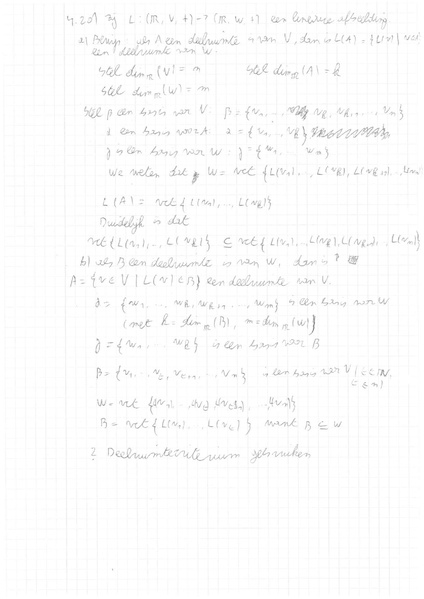 4.20) Zij L: (ℝ, V, +) → (ℝ, W, +) een lineaire afbeelding
a) Bewijs als A een deelruimte is van V, dan is L(A) = {L(v) | v∈
een deelruimte van W.
Stel dim_ℝ(V) = n Stel dim_ℝ(A) = k
Stel dim_ℝ(W) = m
Stel β een basis voor V β = {v₁, ..., v_k, v_k+1, ..., v_n}
α een basis voor A: α = {v₁, ..., v_k}
γ is een basis voor W: γ = {w₁, ... w_m}
We weten dat W = vct {L(v₁), ..., L(v_k), L(v_k+1), ...
L(A) = vct {L(v₁), ..., L(v_k)}
Duidelijk is dat
vct{L(v₁), ..., L(v_k)} ⊆ vct{L(v₁), ..., L(v_k), L(v_k+1), ..., L(v_n)}
b) als B een deelruimte is van W, dan is
A = {v∈V | L(v) ∈ B} een deelruimte van V.
α = {w₁, ... w_k, w_k+1, ..., w_m} is een basis voor W
(met k = dim_ℝ(B), m = dim_ℝ(W))
γ = {w₁, ... w_k} is een basis voor B
β = {v₁, ... v_c, v_c+1, ..., v_n} is een basis voor V
W = vct
B = vct{L(v₁), ... L(v_c)} want B ⊆ W
? Deelruimtecriterium gebruiken